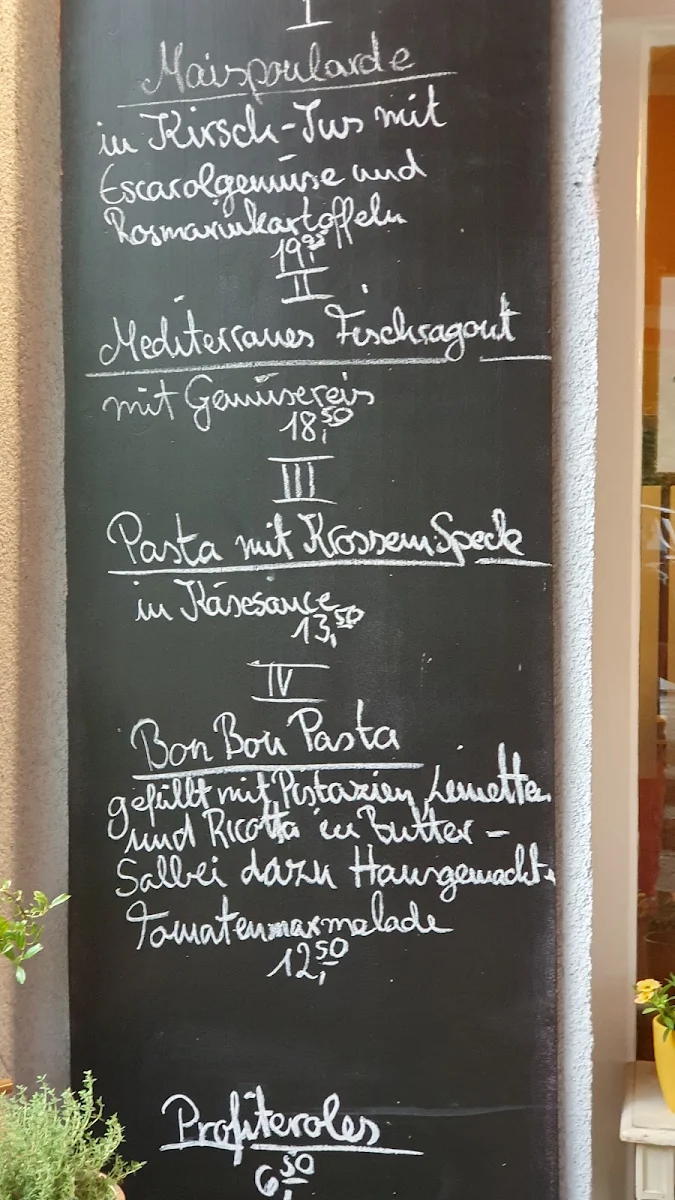 I
Maispoularde
in Kirsch-Jus mit
Escarolgemüse und
Rosmarinkartoffeln
II
Mediterranes Fischragout
mit Gemüsereis
18,50
III
Pasta mit Krossem Speck
in Käsesauce
13,50
IV
Bon Bon Pasta
gefüllt mit Pistazien, Limetten
und Ricotta in Butter-
Salbei dazu Hausgemacht.
Tomatenmarmelade
12,50
Profiteroles
6,50